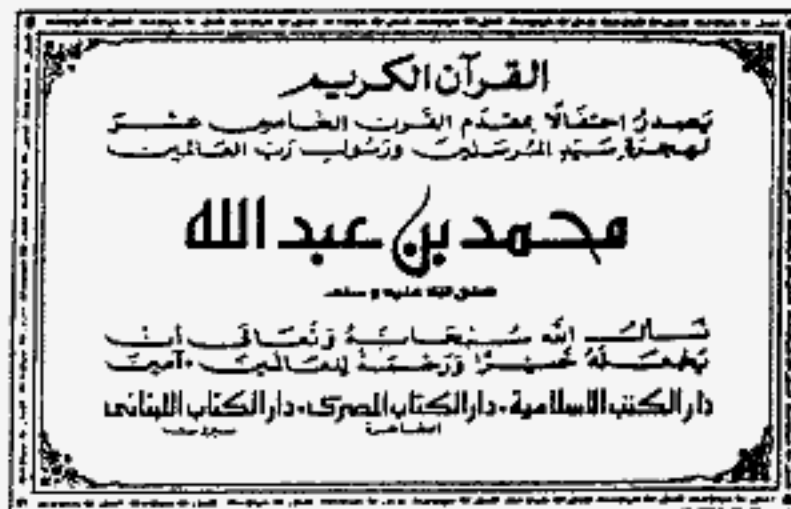 القرآن الكريم
يصدر احتفالًا بمقدم القرن الخامس عشر
لهجرة سيد المرسلين ورسول رب العالمين
محمد بن عبد الله
صلى الله عليه وسلم
نسأل الله سبحانه وتعالى أن
يجعله خيرًا ورحمة للعالمين • آمين
دار الكتب الاسلامية • دار الكتاب المصرى • دار الكتاب اللبنانى
القاهرة بيروت